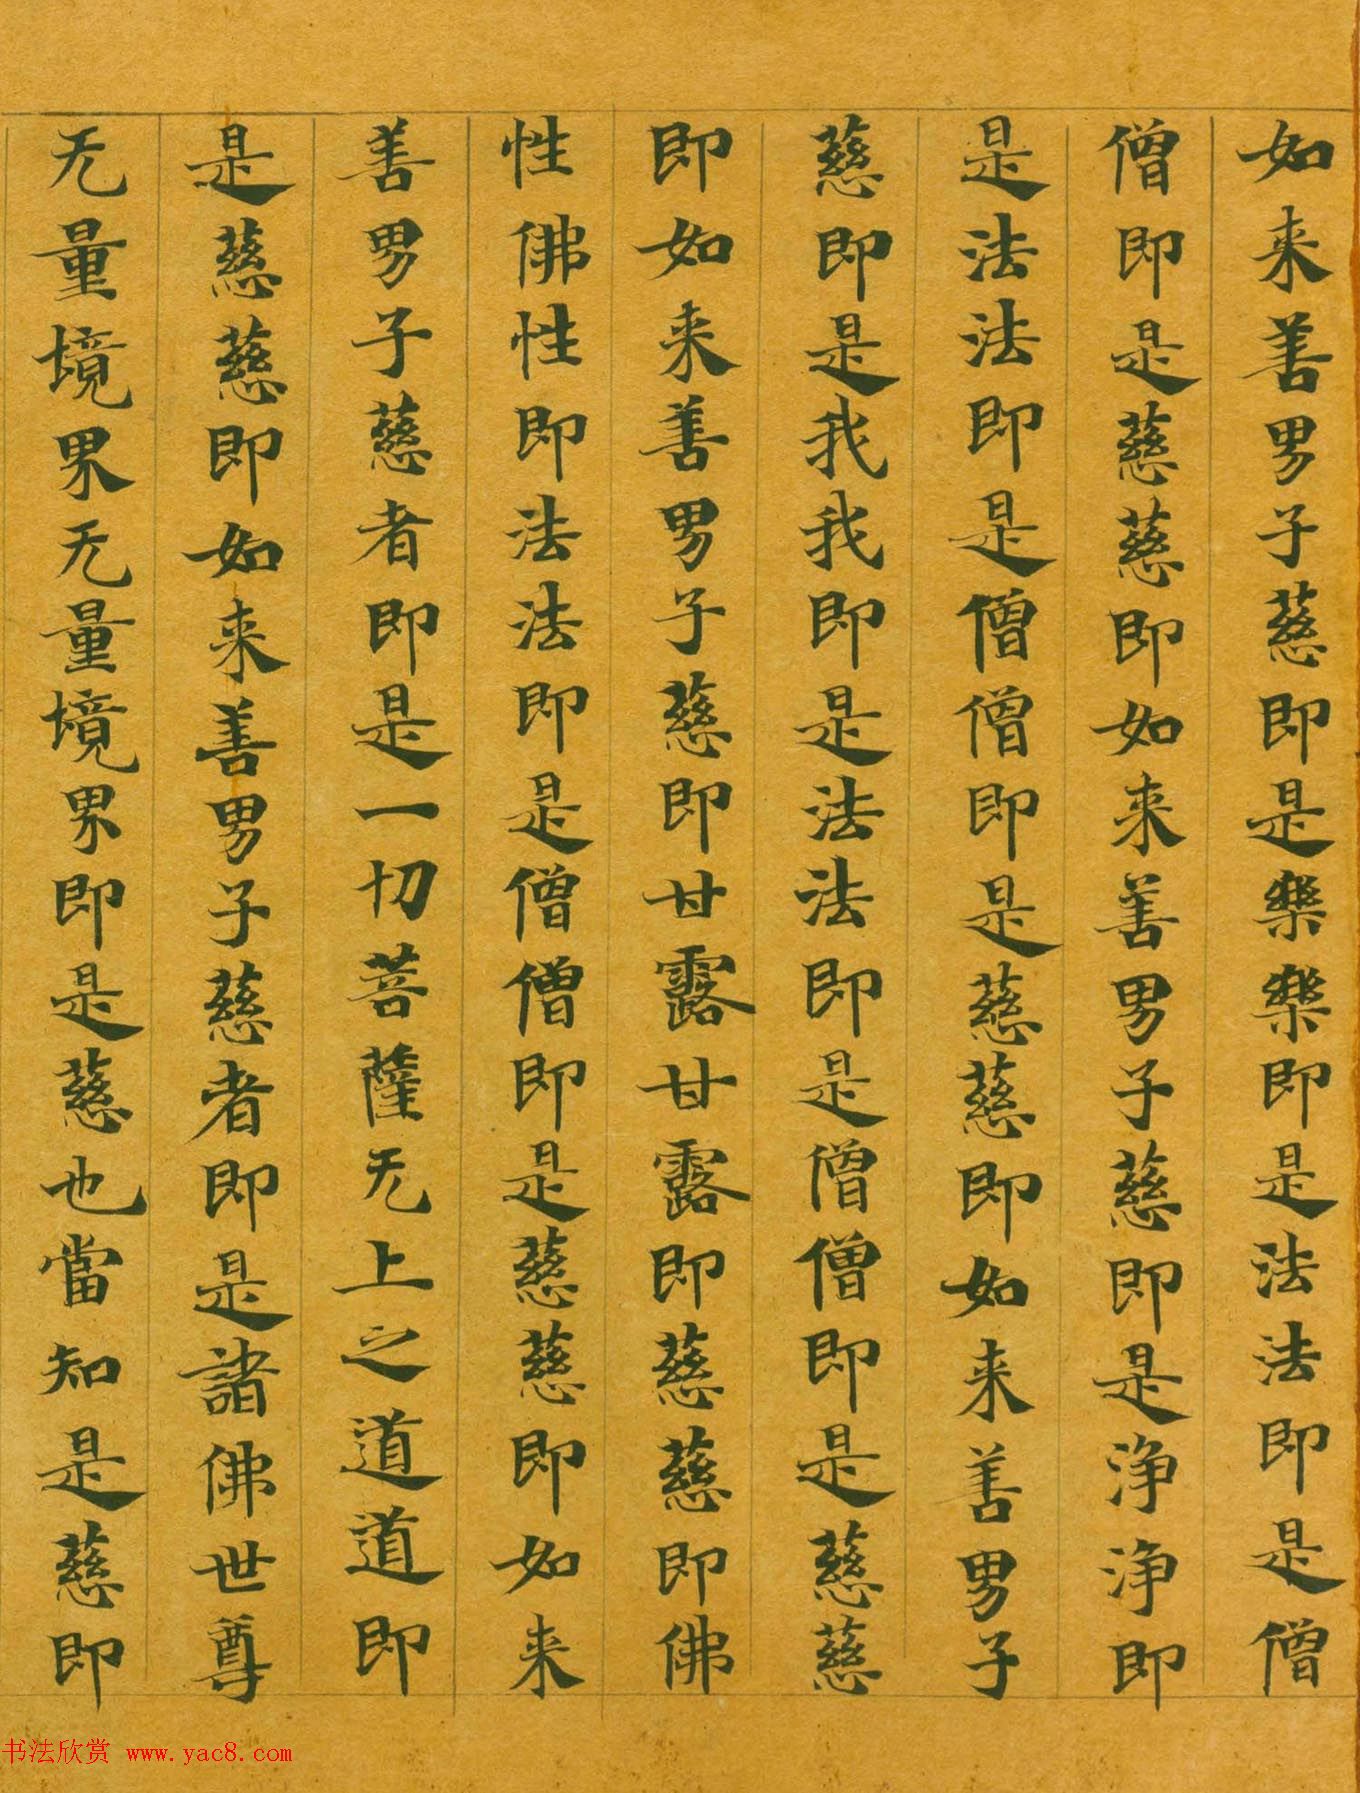 如来善男子慈即是樂樂即是法法即是僧
僧即是慈慈即如来善男子慈即是浄浄即
是法法即是僧僧即是慈慈即如来善男子
慈即是我我即是法法即是僧僧即是慈慈
即如来善男子慈即甘露甘露即慈慈即佛
性佛性即法法即是僧僧即是慈慈即如来
善男子慈者即是一切菩薩无上之道道即
是慈慈即如来善男子慈者即是諸佛世尊
无量境界无量境界即是慈也當知是慈即
书法欣赏 www.yac8.com